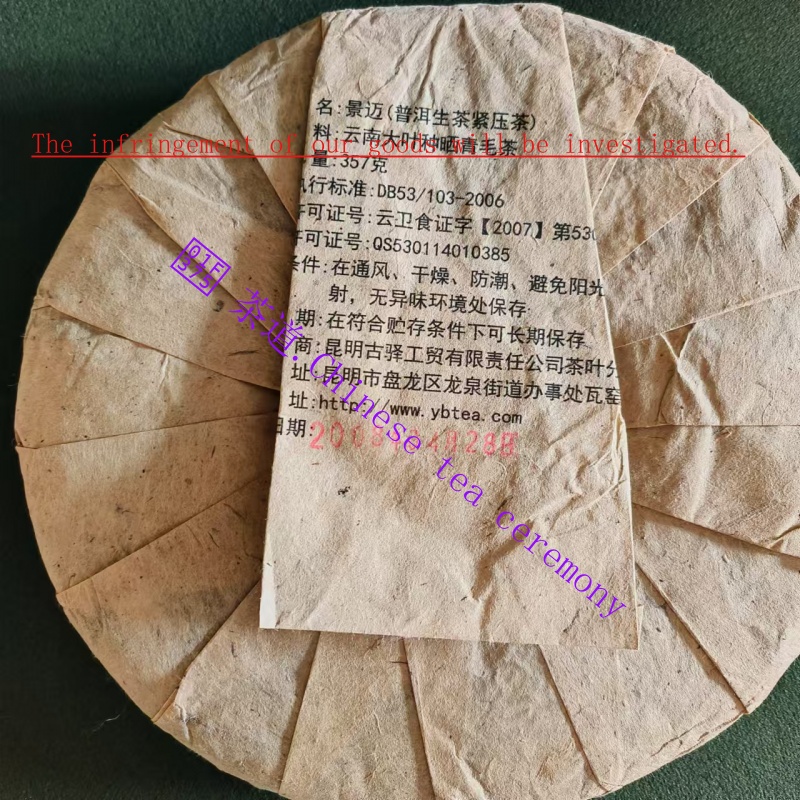 名:景迈(普洱生茶紧压茶)
The infringement of our goods will be investigated.
料:云南大叶种晒青毛茶
量:357克
执行标准:DB53/103-2006
许可证号:云卫食证字【2007】第530
许可证号:QS530114010385
条件:在通风、干燥、防潮、避免阳光
射，无异味环境处保存
期:在符合贮存条件下可长期保存
商:昆明古驿工贸有限责任公司茶叶分
址:昆明市盘龙区龙泉街道办事处瓦窑
址:http://www.ybtea.com
日期:
茶道.Chinese tea ceremony